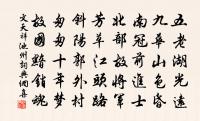 五老湖光遠
九華山色昏
南冠前進士
北部故將軍
芳草江頭路
斜陽郭外村
匆匆十年夢
故國黯銷魂
文天祥池州詞典網集